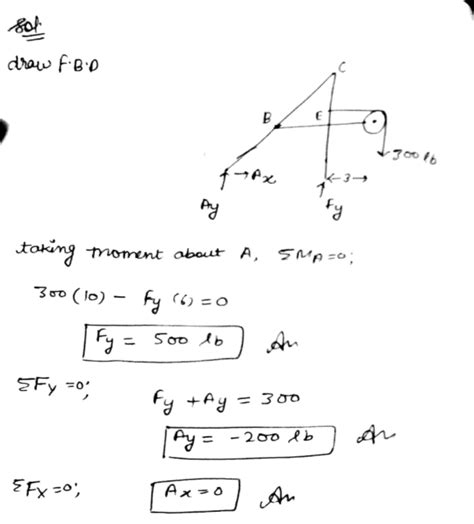 Sol.
draw F.B.D
C
B
E
300 lb
Ax
3
Ay
Fy
taking moment about A, ΣMA=0;
300(10) - Fy (6) = 0
Fy = 500 lb An
ΣFy =0; Fy + Ay = 300
Ay = -200 lb An
ΣFx =0; Ax = 0 An